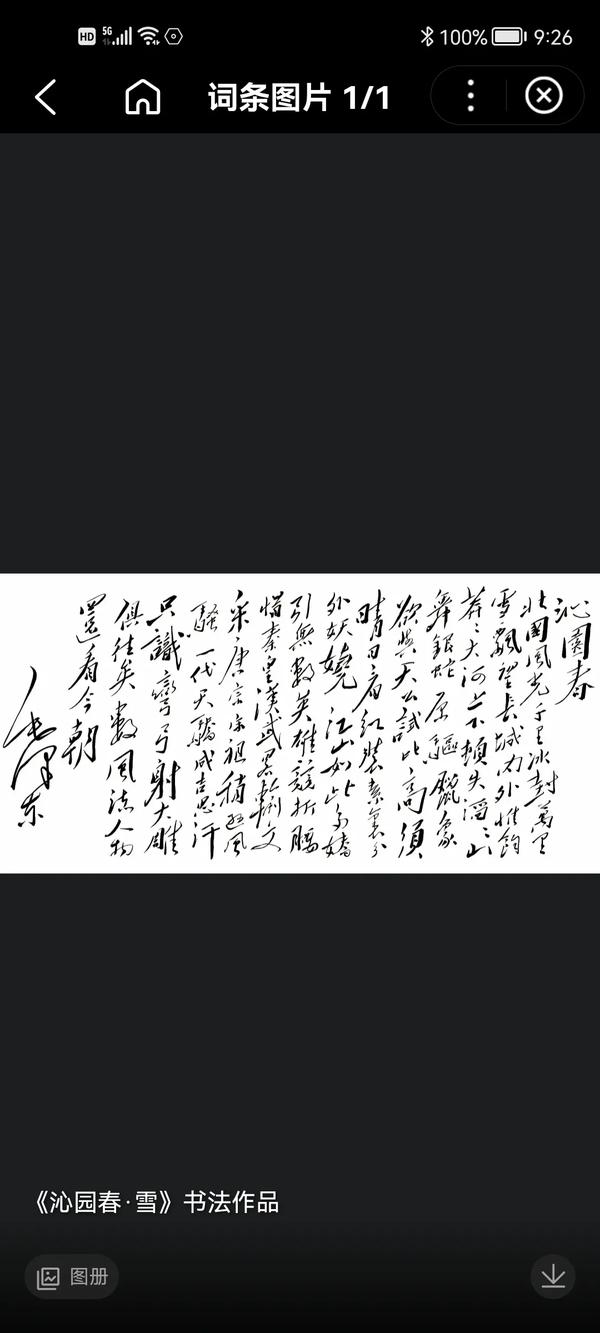 HD 5G 100% 9:26
词条图片 1/1
沁園春
北國風光千里冰封萬里
雪飄望長城内外惟餘
莽々大河上下頓失滔々山
舞銀蛇原驅臘象
欲與天公試比高須
晴日看紅裝素裹分
外妖嬈江山如此多嬌
引無數英雄競折腰
惜秦皇漢武略輸文
采唐宗宋祖稍遜風
騷一代天驕成吉思汗
只識彎弓射大雕
俱往矣數風流人物
還看今朝
毛澤东
《沁园春·雪》书法作品
图册